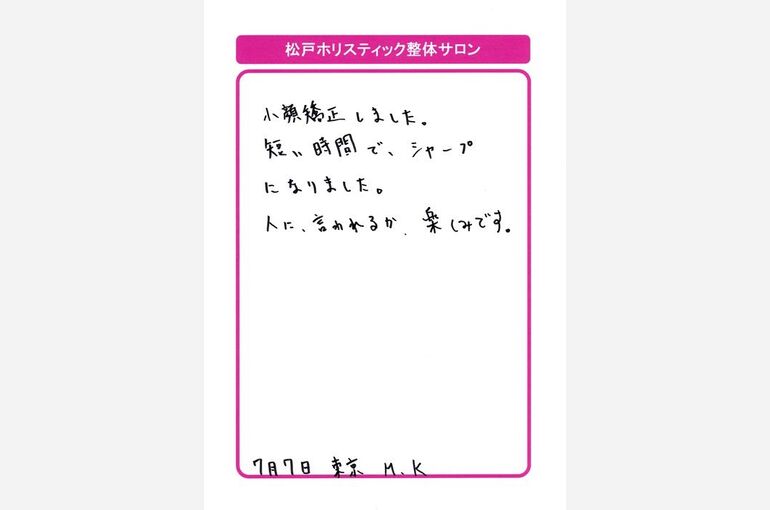 松戸ホリスティック整体サロン
小顔矯正しました。
短い時間で、シャープ
になりました。
人に、言われるか、楽しみです。
7月7日 東京 M.K